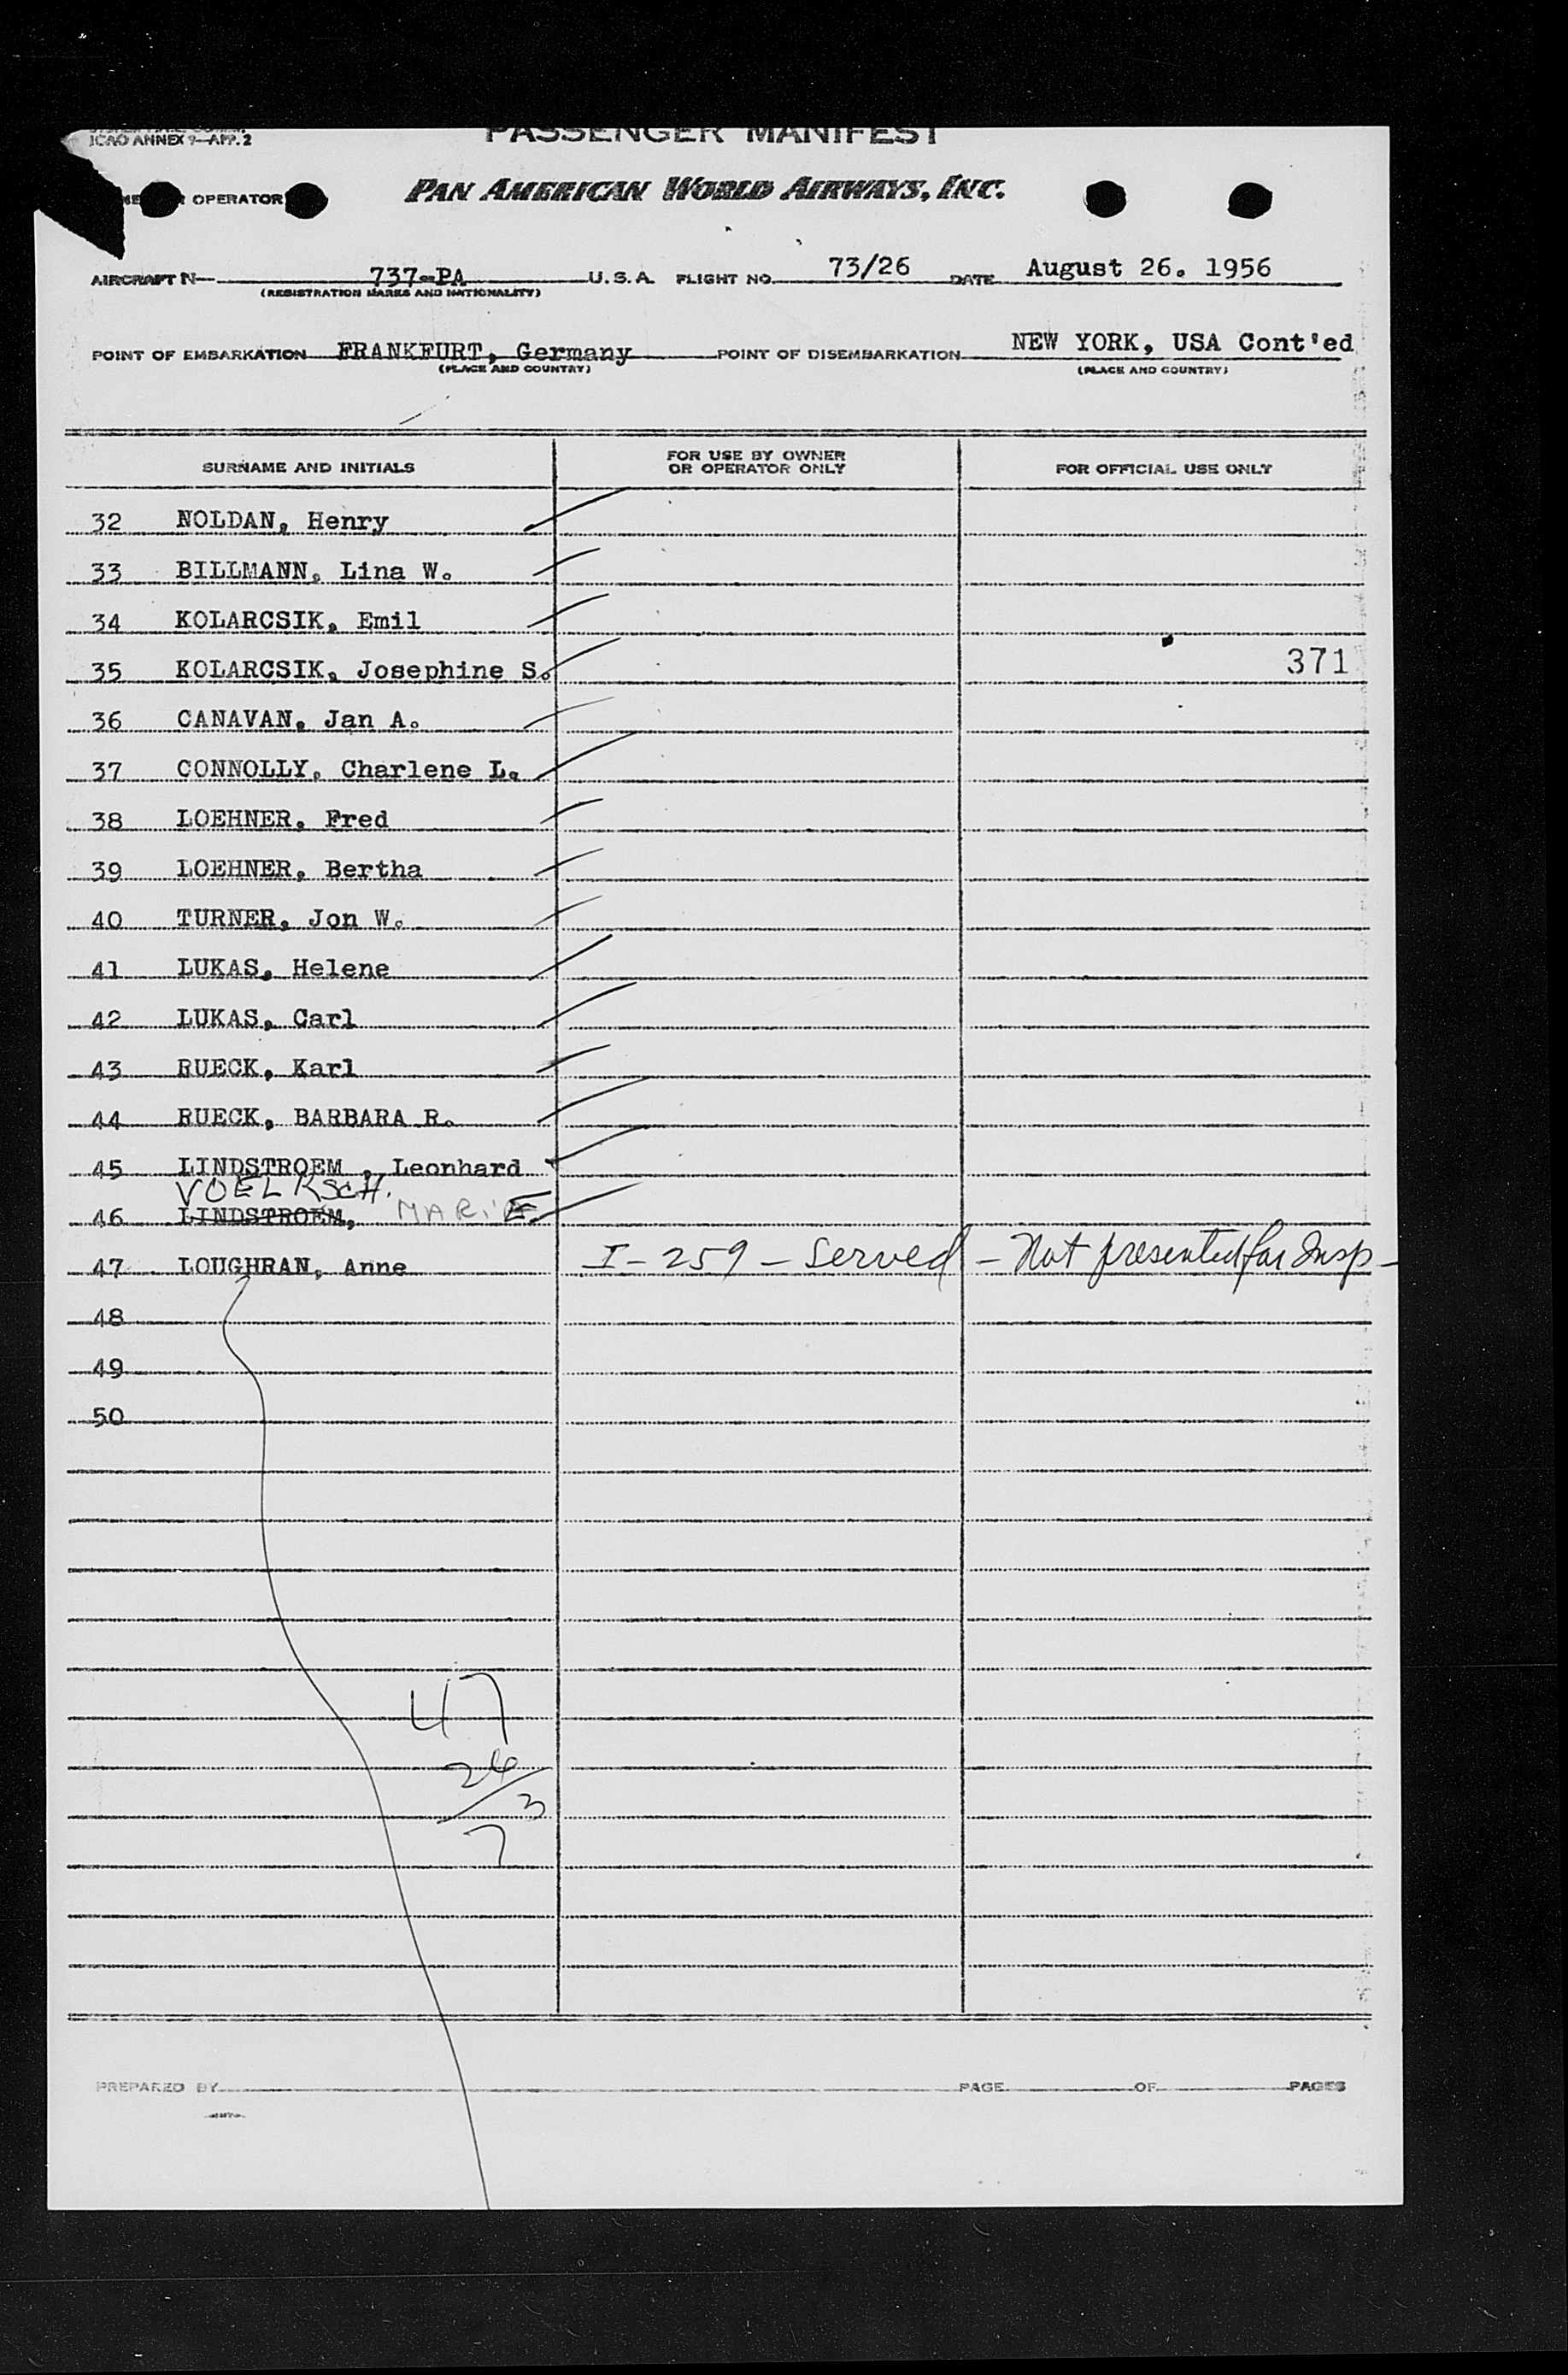 ICAO ANNEX 9—APP. 2
PASSENGER MANIFEST
OPERATOR
PAN AMERICAN WORLD AIRWAYS, INC.
AIRCRAFT N— 737-PA U.S.A. FLIGHT NO. 73/26 DATE August 26. 1956
(REGISTRATION MARKS AND NATIONALITY)
POINT OF EMBARKATION FRANKFURT, Germany POINT OF DISEMBARKATION NEW YORK, USA Cont'ed
(PLACE AND COUNTRY) (PLACE AND COUNTRY)
SURNAME AND INITIALS FOR USE BY OWNER OR OPERATOR ONLY FOR OFFICIAL USE ONLY
32 NOLDAN, Henry
33 BILLMANN, Lina W.
34 KOLARCSIK, Emil
35 KOLARCSIK, Josephine S. 371
36 CANAVAN, Jan A.
37 CONNOLLY, Charlene L.
38 LOEHNER, Fred
39 LOEHNER, Bertha
40 TURNER, Jon W.
41 LUKAS, Helene
42 LUKAS, Carl
43 RUECK, Karl
44 RUECK, BARBARA R.
45 LINDSTROEM , Leonhard
VOELKSCH.
46 LINDSTROEM, MARiE
47 LOUGHRAN, Anne I-259 - Served - Not presented for Insp -
48
49
50
47
24/3
7
PREPARED BY PAGE OF PAGES